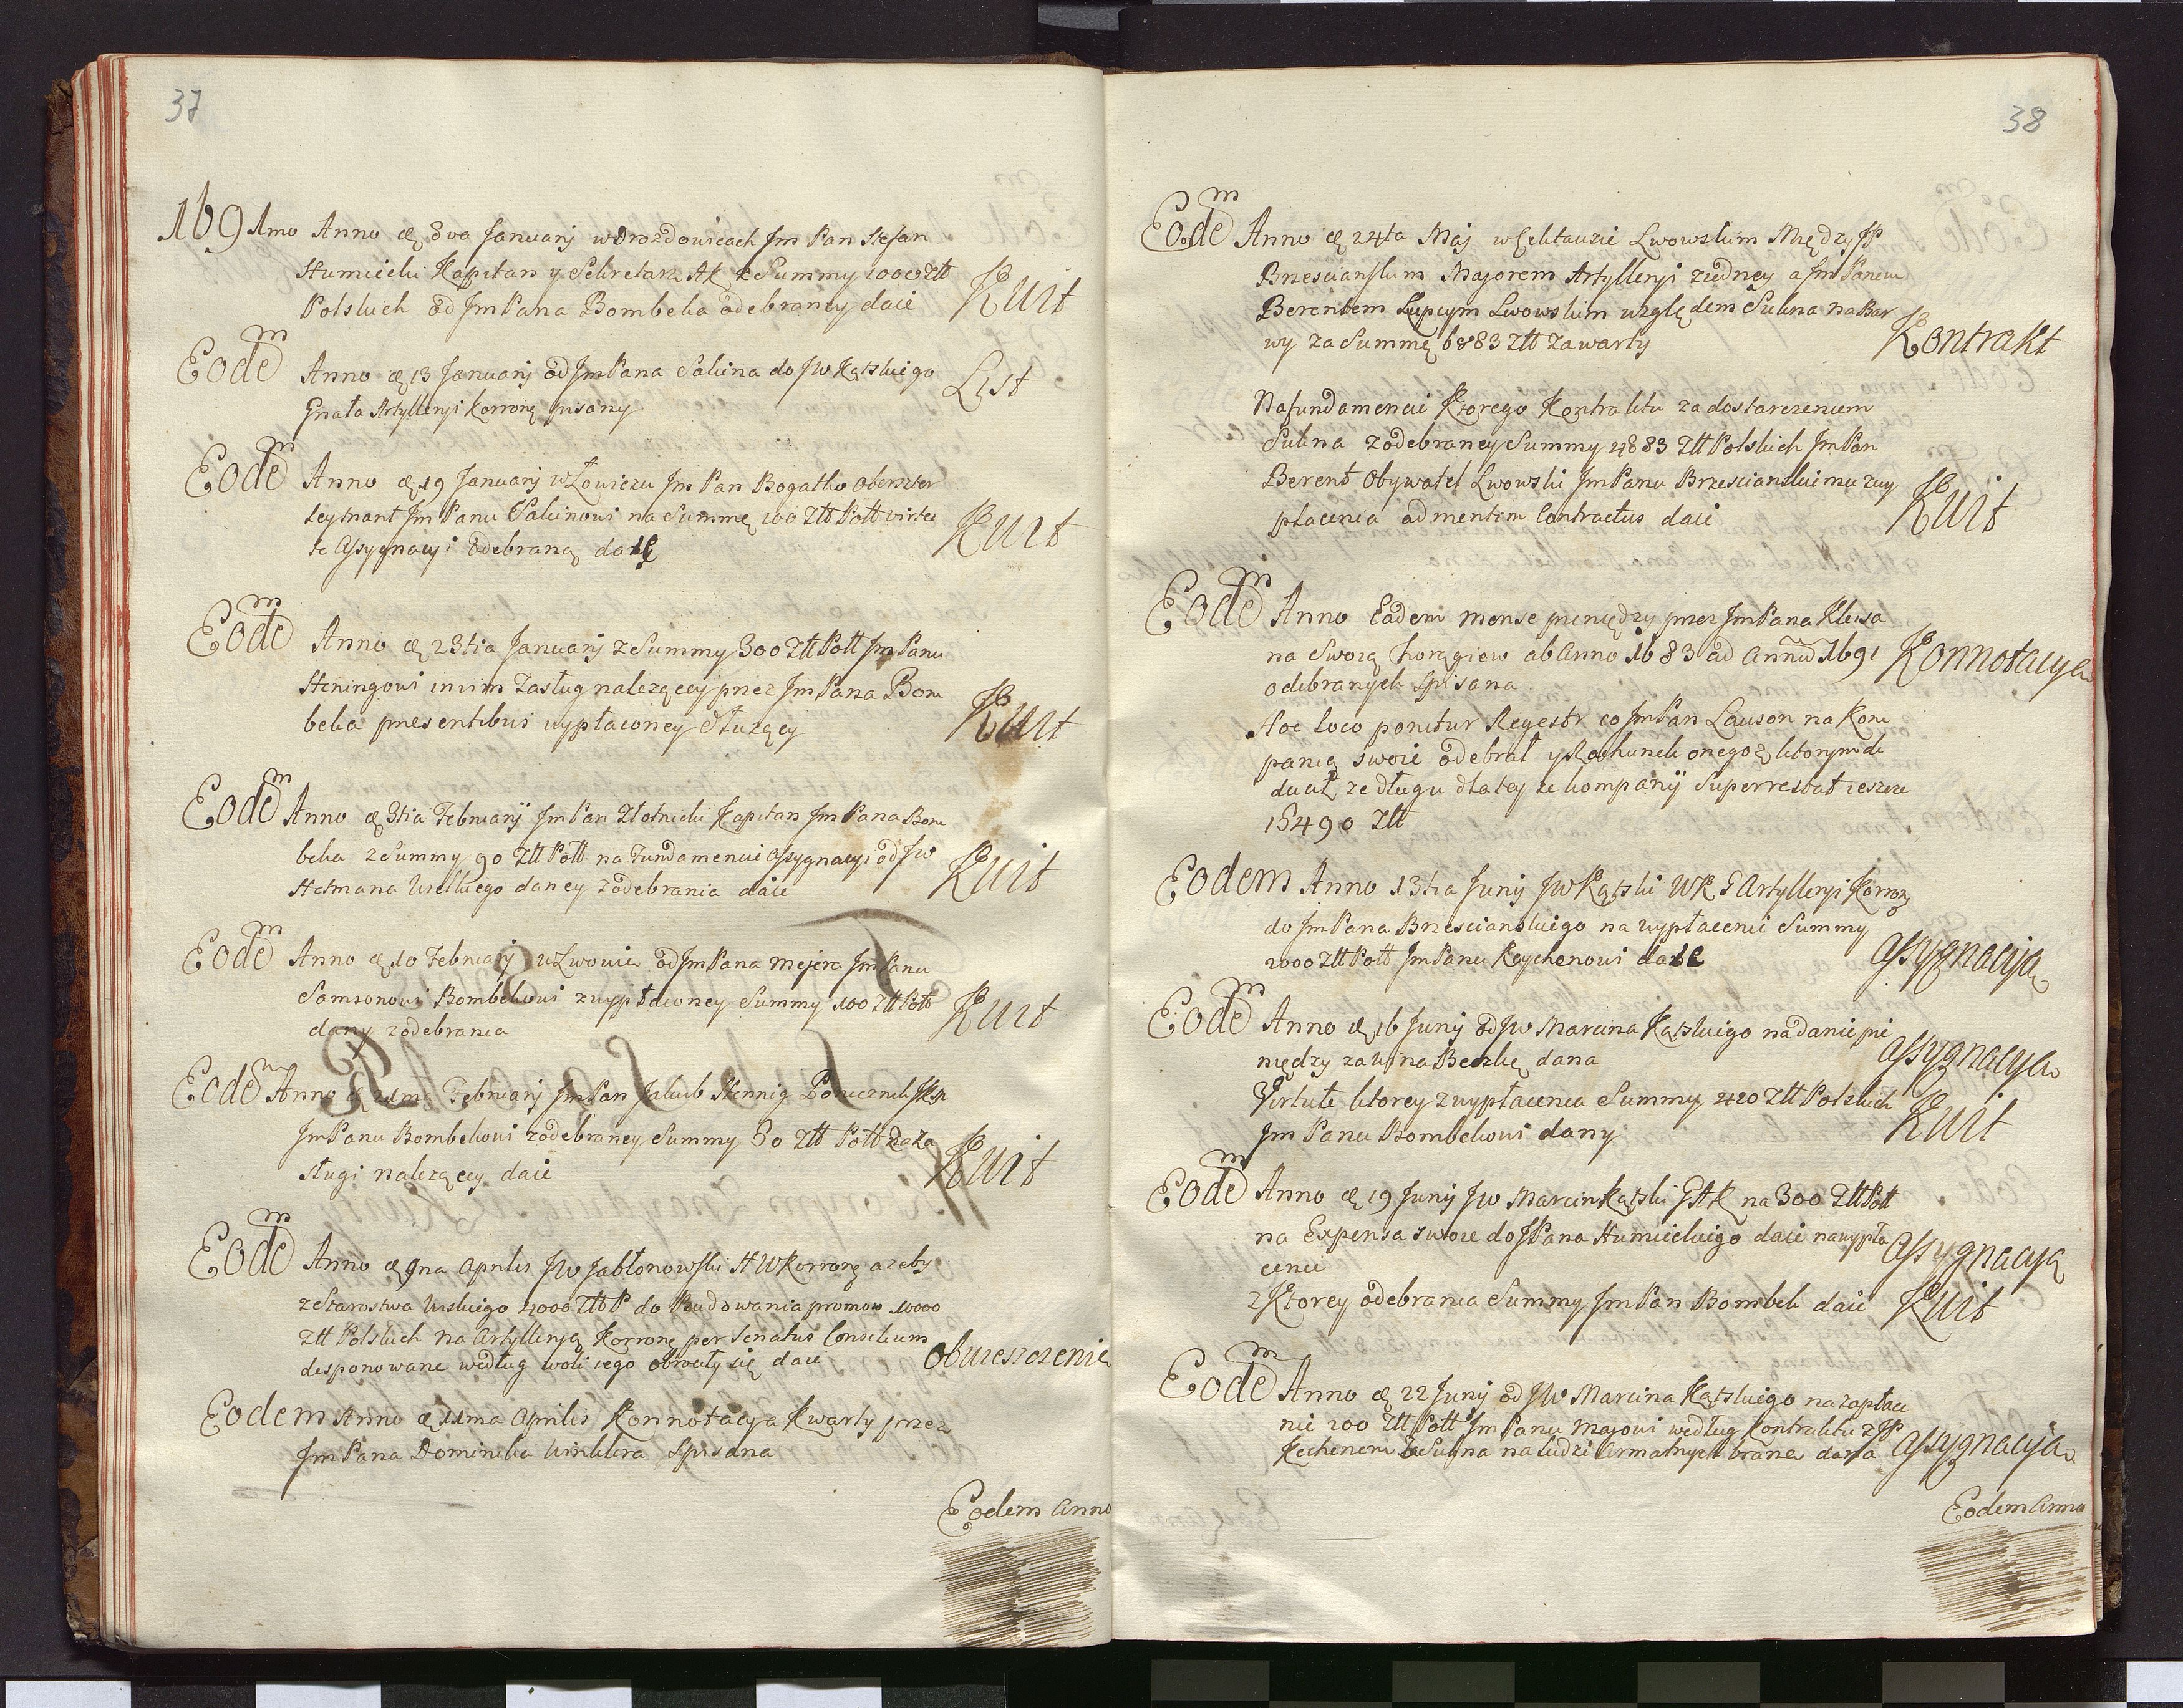 37
1691mo Anno d 8va Januarij w Drozdowicach Jm Pan Stefan
Humiecki Kapitan y Sekretarz AK z Summy 1000 Złł
Polskich od Jm Pana Bombeka odebraney daie Kwit
Eodem Anno d 13 Januarij od Jm Pana Sakina do JW Kątskiego
Gnała Artylleryi Korroney pisany List
Eodem Anno d 19 Januarij w Łowiczu Jm Pan Bogatko Oberszter
leytnant Jm Panu Sakinowi na Summę 100 Złł Poll virtu
te Assygnacyi odebraną daie Kwit
Eodem Anno d 23tia Januarij z Summy 300 Złł Poll Jm Panu
Heningowi in vim Zasług nalezącey przez Jm Pana Bom
beka presentibus wypłaconey służący Kwit
Eodem Anno d 3tia Februarij Jm Pan Złotnicki Kapitan Jm Pana Bom
beka z Summy 90 Złł Poll na Fundamencie Assygnacyi od JW
Hetmana Wielkiego daney z odebrania daie Kwit
Eodem Anno d 10 Februarij w Lwowie od Jm Pana Mejera Jm Panu
Samsonowi Bombekowi z wypłaconey Summy 100 Złł Poll
dany z odebrania Kwit
Eodem Anno d 21ma Februarij Jm Pan Jakub Hennig Porucznik JKM
Jm Panu Bombekowi z odebraney Summy 30 Złł Poll za Za
sługi nalezącey daie Kwit
Eodem Anno d 9na Aprilis JW Jabłonowski HWKorronę azeby
z Starostwa 4000 Złł P do Budowania promow 10000
Złł Polskich na Artylleryą Korronę per Senatus Consilium
desponowane według woli iego obrociły się daie Obwieszczenie
Eodem Anno d 11ma Aprilis Konnotacya Kwarty przez
Jm Pana Dominika Winklera Spisana
Eodem Anno
38
Eodem Anno d 24ta Maj w Cekauzie Lwowskim Między JP
Brzescianskim Majorem Artylleryi z iedney a Jm Panem
Berentem Kupcym Lwowskim względem Sukna na Bar
wy za Summę 6883 Złł zawarty Kontrakt
Na fundamencie Ktorego Kontraktu za dostarczeniem
Sukna z odebraney Summy 4883 Złł Polskich Jm Pan
Berent Obywatel Lwowski Jm Panu Brzescianskimu z wy
płacenia ad mentem Contractus daie Kwit
Eodem Anno Eadem mense pieniędzy przez Jm Pana Kleisa
na Swoią horągiew ab Anno 1683 ad Annum 1691 Konnotacya
odebranych spisana
Hoc loco ponitur Regestr co Jm Pan Lauson na Kom
panią swoie odebrał y Rachunek onegoz, ktorym de
duał, ze długu dla tey ze kompanij Superrestat ieszcze
15490 Złł
Eodem Anno 13tia Junij JW Kątski WK G Artylleryi Korroną
do Jm Pana Brzescianskiego na wypłacenie Summy
2000 Złł Poll Jm Panu Keychenowi daie Assygnacija
Eodem Anno d 16 Junij od JW Marcina Kątskiego na danie pie
niędzy za Wina Beczkę dana Assygnacya
Virtute ktorey z wypłacenia Summy 420 Złł Polskich
Jm Panu Bombekowi dany Kwit
Eodem Anno d 19 Junij JW Marcin Kątski GAK na 300 Złł Poll
na Expensa swoie do JPana Humieckiego daie na wypła
cenie Assygnacyą
z Ktorey odebrania Summy Jm Pan Bombek daie Kwit
Eodem Anno d 22 Junij od JW Marcina Kątskiego na zapłace
nie 200 Złł Poll Jm Panu Majowi według Kontraktu z JP
Kechenem za Sukna na ludzi Armatnych brane dana Assygnacija
Eodem Anno